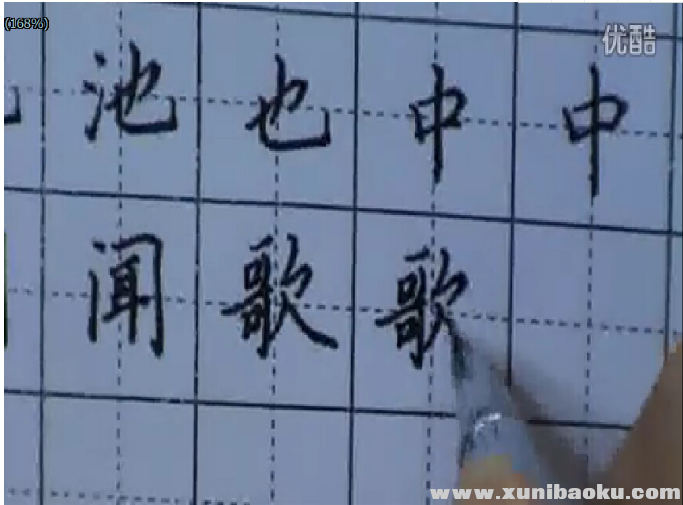 (168%)
优酷
池也中中
闻歌歌
www.xunibaoku.com